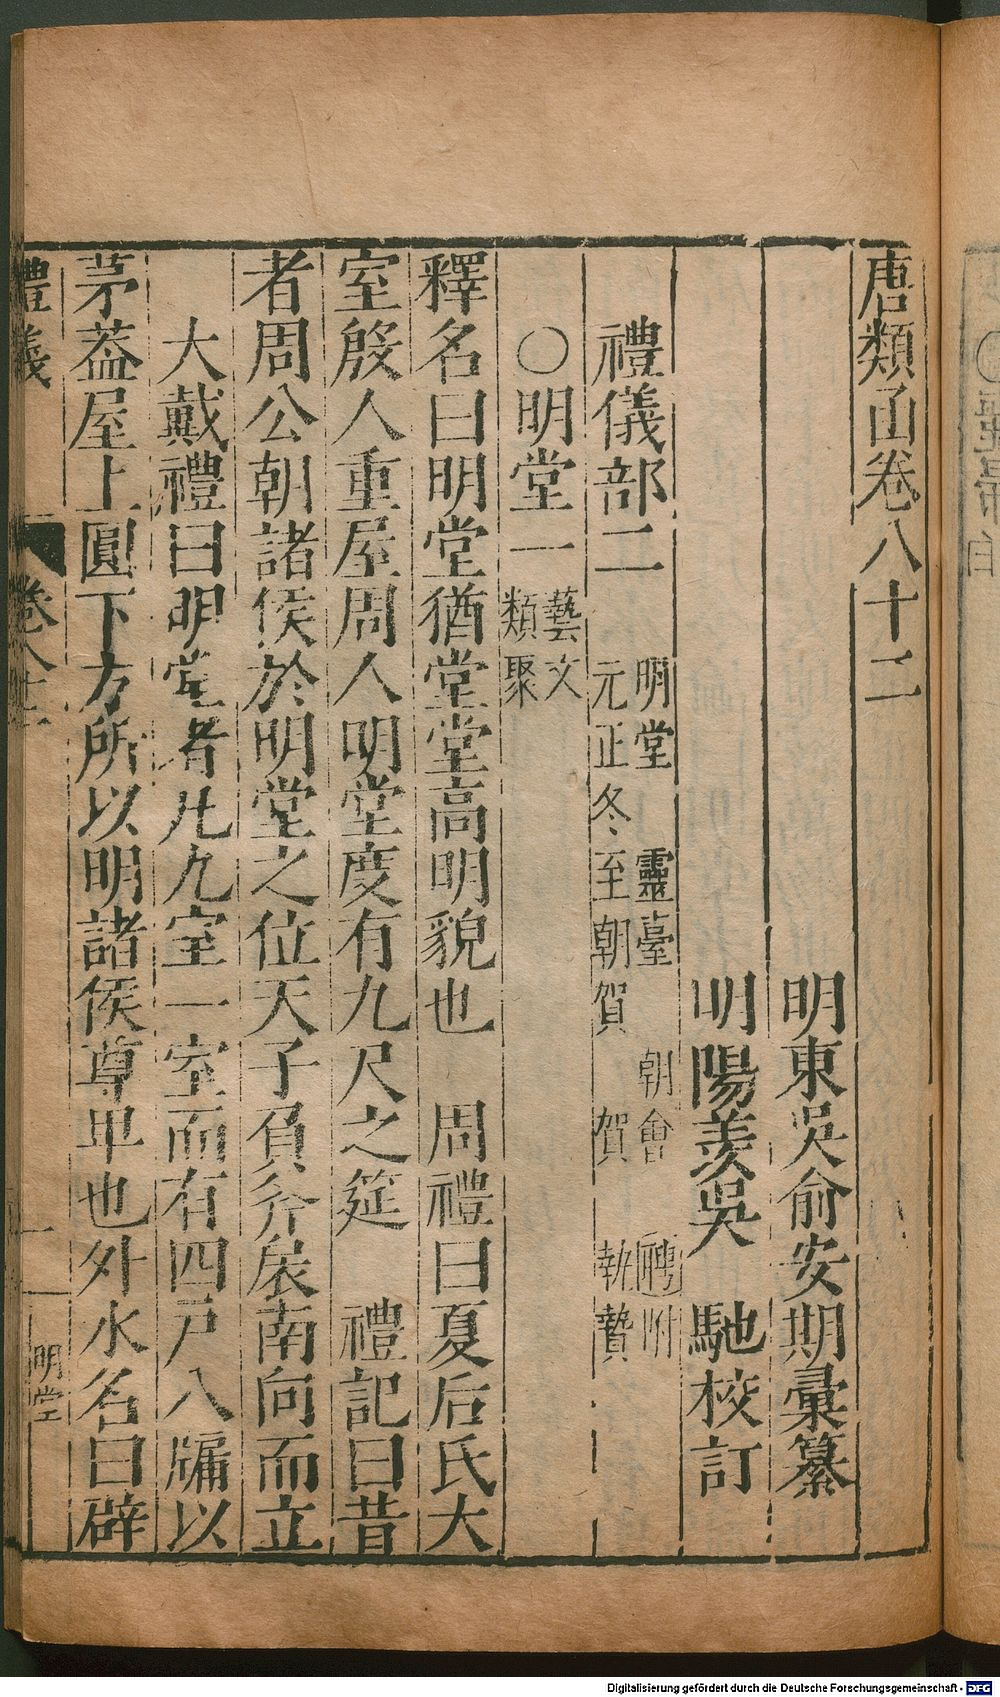 唐類函卷八十二
明東吳俞安期彙纂
明陽羨吳　馳校訂
禮儀部二
明堂　靈臺　朝會　聘附
元正冬至朝賀　賀　執贄
〇明堂一
藝文
類聚
釋名曰明堂猶堂堂高明貌也　周禮曰夏后氏大
室殷人重屋周人明堂度有九尺之筵　禮記曰昔
者周公朝諸侯於明堂之位天子負斧扆南向而立
大戴禮曰明堂者凡九室一室而有四戶八牖以
茅蓋屋上圓下方所以明諸侯尊卑也外水名曰辟
禮儀　卷八十二　一　明堂
Digitalisierung gefördert durch die Deutsche Forschungsgemeinschaft - DFG